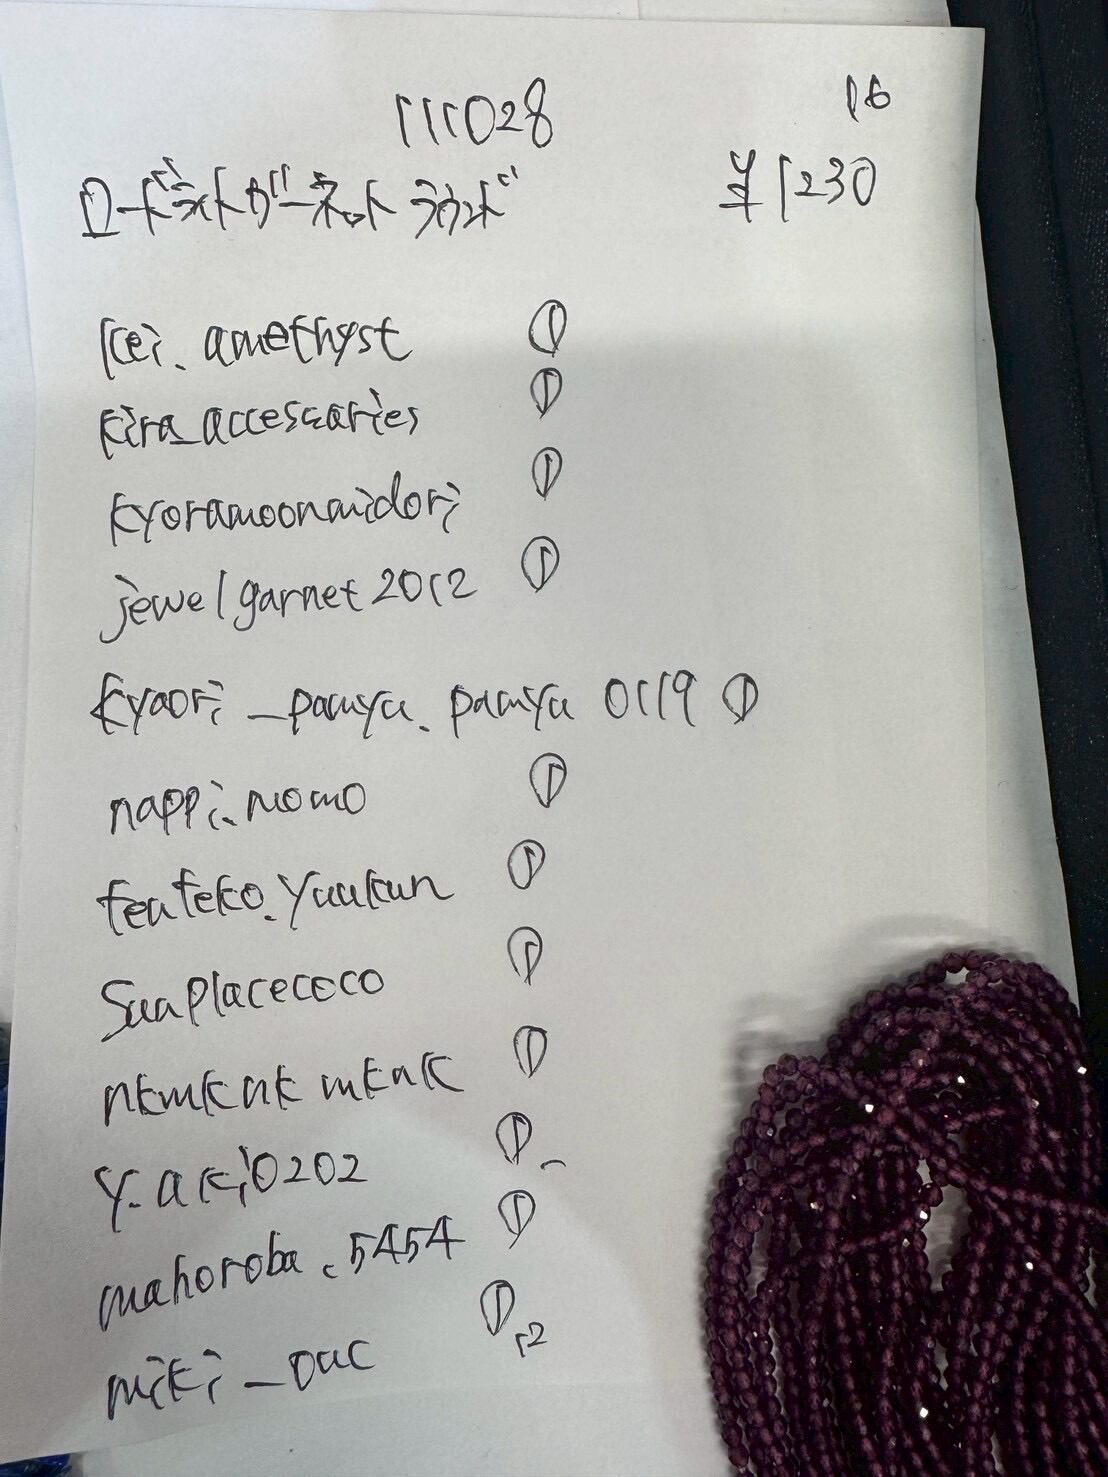 111028
16
ロードライトガーネット ラウンド
¥1230
kei.amethyst ①
kira_accessories ①
kyoramoonmidori ①
jewelgarnet2012 ①
kyaori_pamya.pamya 0119 ①
nappi.momo ①
teuteko.yuukun ①
sunplacecoco ①
nkmknk mknk ①
y.aki0202 ①
mahoroba.5454 ①
miki_ouc ①
12